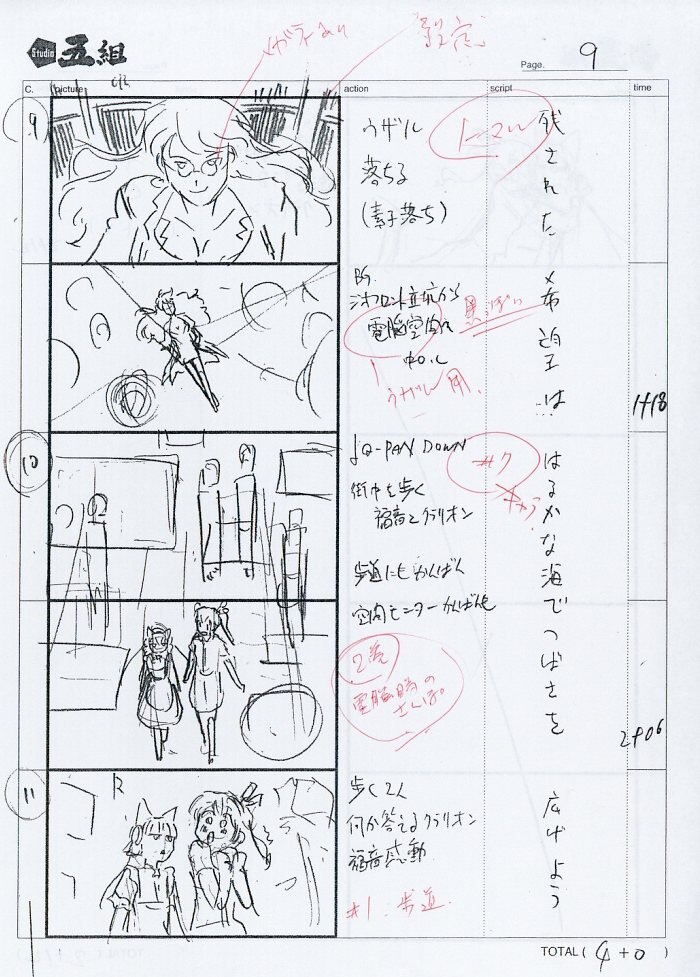 Studio 五組
Page. 9
C. picture action script time
メガネあり
9
ウザル
落ちる
(素子落ち)
残された
BG
電脳空間へ
ウザル用
希望は…
1+18
10
↓Q-PAN DOWN
街中を歩く
福音とクラリオン
歩道にもかんばん
空間モニターかんばんも
#7
はるかな海でつばさを
電脳時の
さんぽ。
2+06
11
R
歩く2人
何か答えるクラリオン
福音感動
#1. 歩道.
広げよう
TOTAL ( 4+0 )